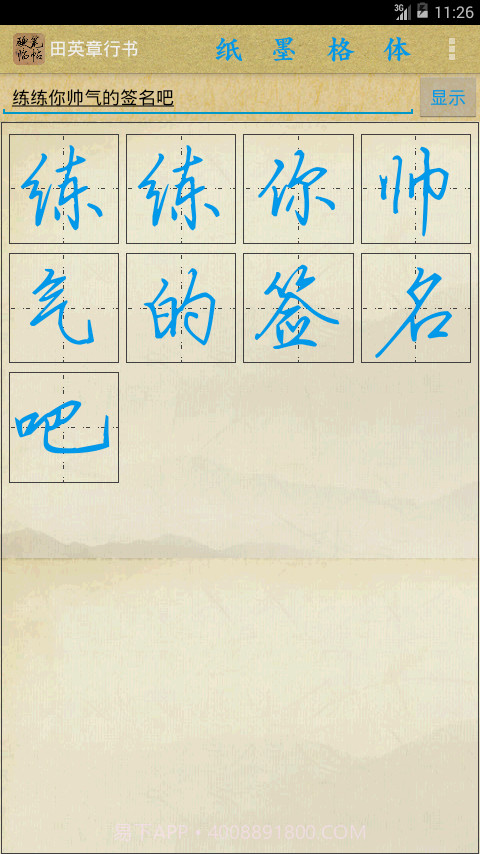 3G 11:26
硬笔临帖 田英章行书 纸 墨 格 体
练练你帅气的签名吧 显示
练 练 你 帅
气 的 签 名
吧
易下APP·4008891800.COM